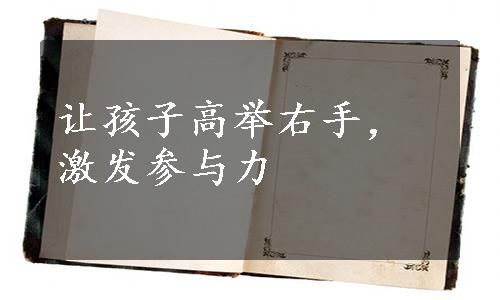 让孩子高举右手，
激发参与力